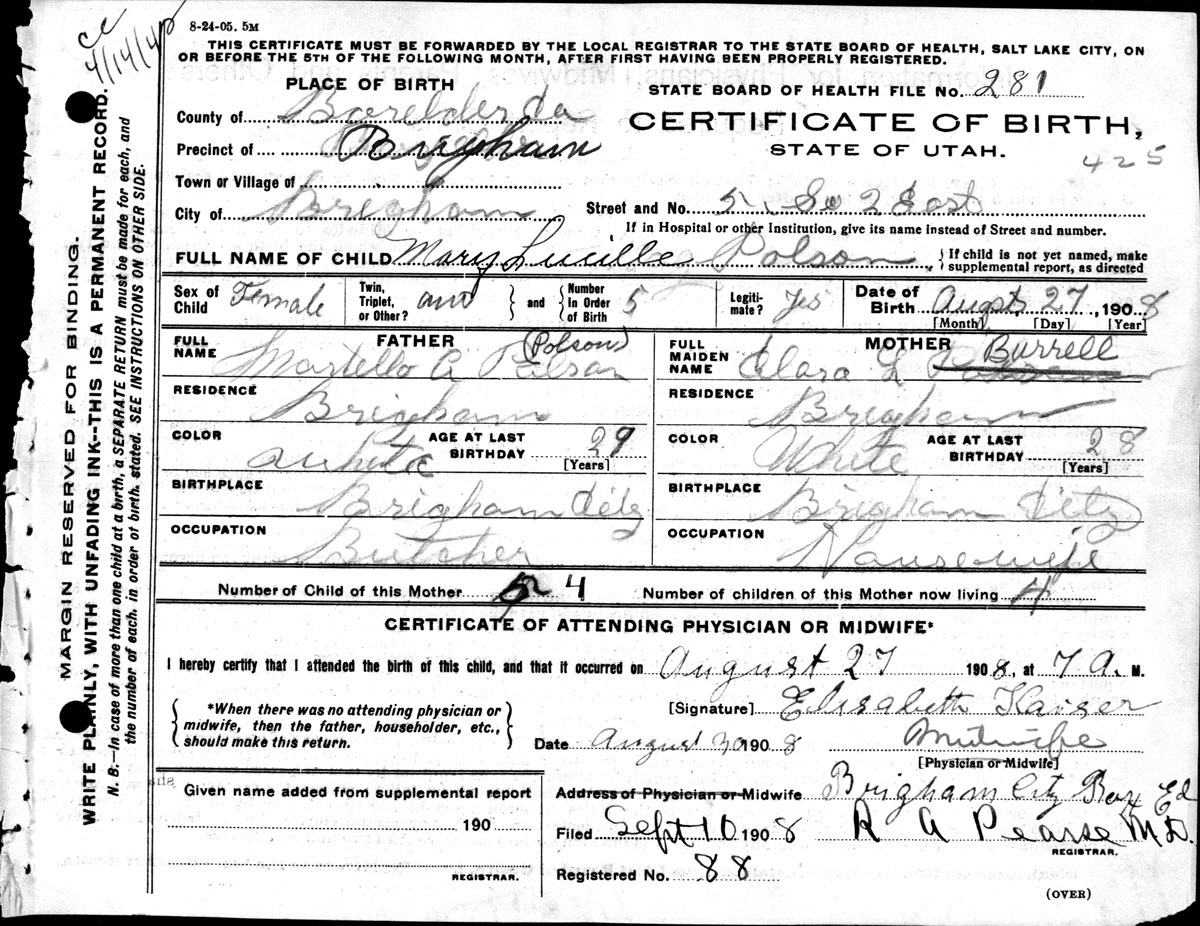 8-24-05. 5M
cc
4/14/40
THIS CERTIFICATE MUST BE FORWARDED BY THE LOCAL REGISTRAR TO THE STATE BOARD OF HEALTH, SALT LAKE CITY, ON
OR BEFORE THE 5TH OF THE FOLLOWING MONTH, AFTER FIRST HAVING BEEN PROPERLY REGISTERED.
PLACE OF BIRTH
STATE BOARD OF HEALTH FILE No. 281
County of Boxelder
CERTIFICATE OF BIRTH,
STATE OF UTAH.
425
Precinct of Brigham
Town or Village of
City of Brigham
Street and No. 5 So 2 East
If in Hospital or other Institution, give its name instead of Street and number.
FULL NAME OF CHILD Mary Lucille Polson
{If child is not yet named, make supplemental report, as directed
Sex of Child Female
Twin, Triplet, or Other? one
and Number In Order of Birth 5
Legiti-mate? Yes
Date of Birth August 27, 1908
[Month] [Day] [Year]
FATHER
FULL NAME Martello A Polson (Polson)
MOTHER
FULL MAIDEN NAME Clara L Burrell
RESIDENCE Brigham
RESIDENCE Brigham
COLOR white
AGE AT LAST BIRTHDAY 29
[Years]
COLOR White
AGE AT LAST BIRTHDAY 28
[Years]
BIRTHPLACE Brigham City
BIRTHPLACE Brigham City
OCCUPATION Butcher
OCCUPATION Housewife
Number of Child of this Mother 5 4
Number of children of this Mother now living 4
CERTIFICATE OF ATTENDING PHYSICIAN OR MIDWIFE*
I hereby certify that I attended the birth of this child, and that it occurred on August 27 1908, at 7 A. M.
{*When there was no attending physician or
midwife, then the father, householder, etc.,
should make this return.}
[Signature] Elisabeth Kaiser
Date August 30 1908
Midwife
[Physician or Midwife]
Given name added from supplemental report
190
REGISTRAR.
Address of Physician or Midwife Brigham City Box Eld
Filed Sept 10 1908
R A Pearse M.D.
REGISTRAR.
Registered No. 88
(OVER)
MARGIN RESERVED FOR BINDING.
WRITE PLAINLY, WITH UNFADING INK--THIS IS A PERMANENT RECORD.
N. B.—In case of more than one child at a birth, a SEPARATE RETURN must be made for each, and
the number of each, in order of birth, stated. SEE INSTRUCTIONS ON OTHER SIDE.